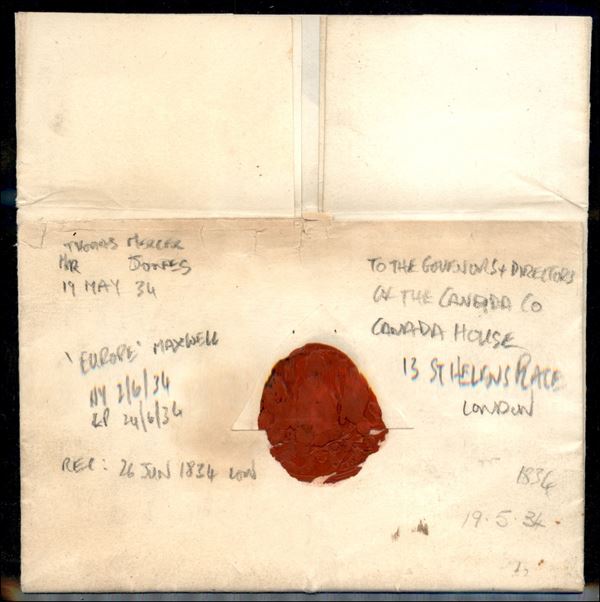 THOMAS MERCER
MR JONES
19 MAY 34
'EUROPE' MAXWELL
NY 2/6/34
LP 24/6/34
REC: 26 JUN 1834 LON
TO THE GOVENORS & DIRECTORS
OF THE CANADA CO
CANADA HOUSE
13 ST HELENS PLACE
LONDON
1834
19.5.34